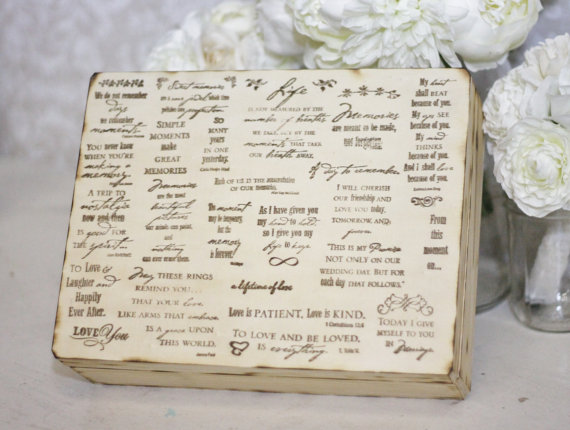 We do not remember
days
we remember
moments
You never know
when you're
making a
memory.
A trip to
nostalgia
now and then
is good for
the spirit
Sweet memories
Simple
Moments
make
Great
Memories
so
many
years
in one
yesterday.
Memories
are the most
beautiful
pictures
our minds can paint,
and
nothing
can ever erase them.
The moment
may be temporary,
but the
memory
is forever.
Life
is not measured by the
number of breaths
we take, but by the
moments that take
our breath away.
Each of us is the accumulation
of our memories.
As I have given you
my hand to hold
so I give you my
life to keep
Memories
are meant to be made,
not forgotten
A day to remember
I will cherish
our friendship and
love you today,
tomorrow, and
forever.
"This is my Promise
not only on our
wedding day, but for
each day that follows."
My heart
shall BEAT
because of you.
My eyes SEE
because of you.
My mind
THINKS
because of you.
And I shall love
because of you.
From
this
moment
on...
To Love &
Laughter and
Happily
Ever After.
LOVE You
May these rings
remind you...
that your love,
like arms that embrace
is a grace upon
this world.
a lifetime of love
Love is PATIENT, Love is KIND.
1 Corinthians 13:4
To love and be loved,
is everything.
Today I give
myself to you
in Marriage